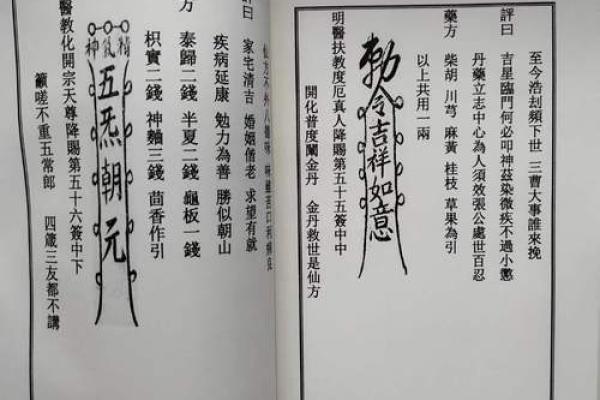 至今浩刼頻下世 三曹大事誰來挽
評曰 吉星臨門何必叩神茲染微疾不過小懲
丹藥立志中心為人須效張公處世百忍
藥方 柴胡 川芎 麻黃 桂枝 草果為引
以上共用一兩
勅令吉祥如意
明醫扶教度厄真人降賜第五十五簽中中
開化普度闡金丹 金丹救世是仙方
評曰 家宅清吉 婚姻偕老 求望有就
疾病延康 勉力為善 勝似朝山
方 泰歸二錢 半夏二錢 龜板一錢
枳實二錢 神麯三錢 茴香作引
精氣神
五炁朝元
醫教化開宗天尊降賜第五十六簽中下
籲嗟不重五常郎 四歲三友都不講